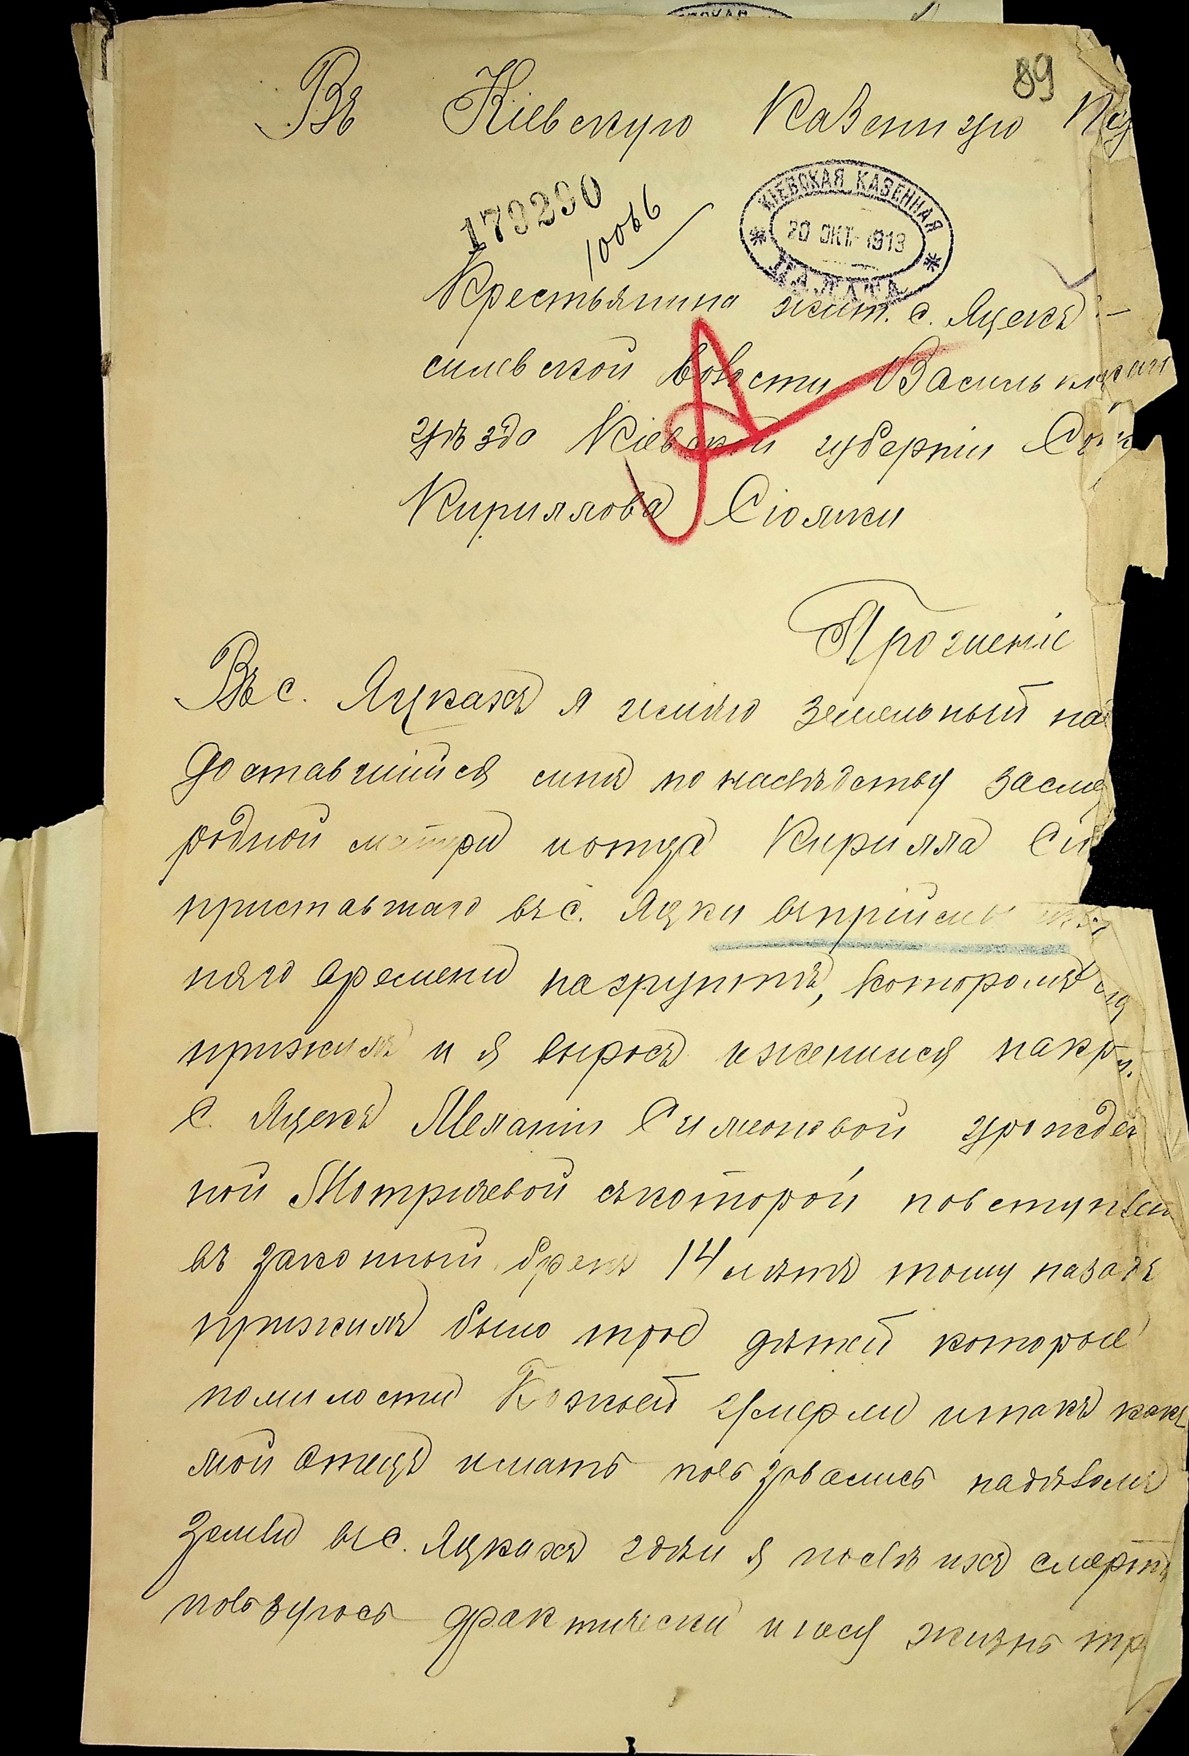 89
Въ Кіевскую Казенную
179290
10066
КІЕВСКАЯ КАЗЕННАЯ
20 ОКТ. 1913
ПАЛАТА
Крестьянина жит. с. Яцекъ
волости
уѣзда Кіевской губерніи
Кириллова Сіомки
Прошеніе
Въ с. Яцкахъ я имѣю земельный на
доставшійся мнѣ по наслѣдству
родной матери и отца Кирилла
приставшаго въ с. Яцки въ пріймы
няго времени на грунтѣ, которомъ
прижилъ и я выросъ и женился на кр.
с. Яцекъ Меланіи Симоновой урожден
ной Мотричевой съ которой по вступленіи
въ законный бракъ 14 лѣтъ тому назадъ
прижилъ было трое дѣтей которые
по милости Божьей умерли и такъ какъ
мой отецъ и мать пользовались надѣломъ
земли въ с. Яцкахъ гдѣ и я послѣ ихъ смерти
пользуюсь фактически и всю жизнь